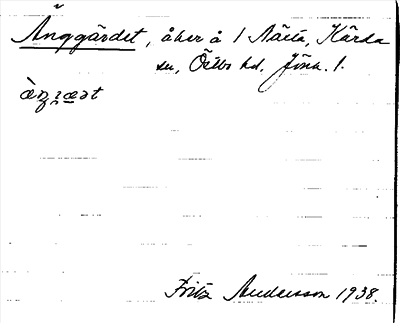 Änggärdet, åker å 1 Näcta, Kärda
sn, Östbo hd, Jönk. l.
Fritz Andersson 1938.